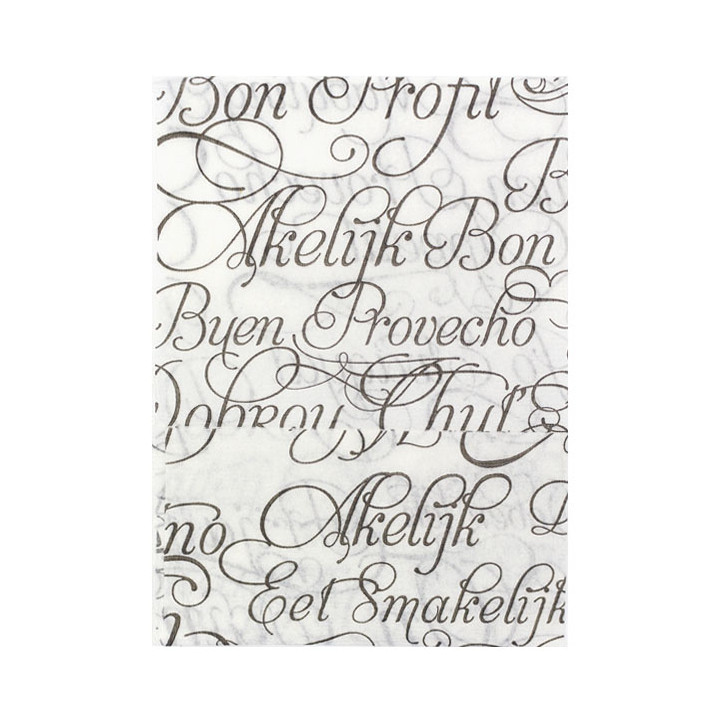 Bon Profit
B
Akelijk Bon
Buen Provecho
Dobrou Chuť
no Akelijk D
Eet Smakelijk